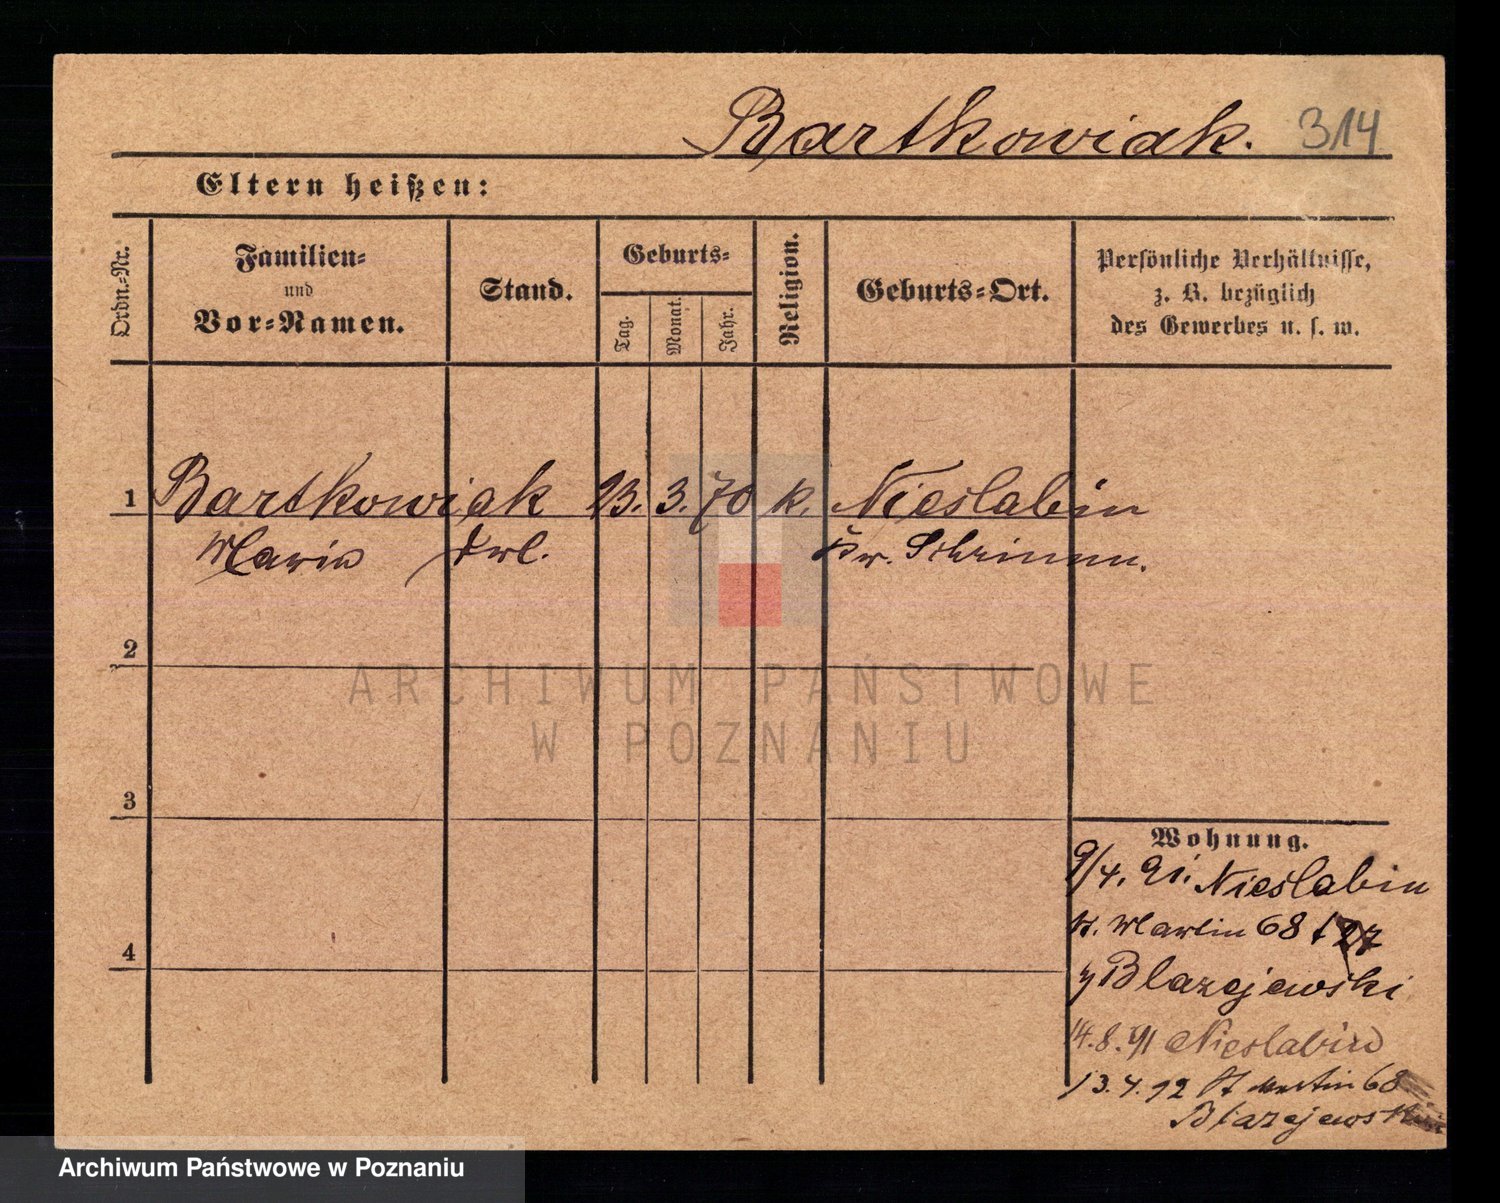 Bartkowiak. 314
Eltern heißen:
Ordn.-Nr.
Familien-
und
Vor-Namen.
Stand.
Geburts-
Tag.
Monat.
Jahr.
Religion.
Geburts-Ort.
Persönliche Verhältnisse,
z. B. bezüglich
des Gewerbes u. s. w.
1 Bartkowiak 13. 3. 70 k. Nieslabin
Maria Kr. Schrimm.
2
3
4
Wohnung.
9/4. 91. Nieslabin
St. Martin 68
Blazejewski
14.8.91 Nieslabin
13.4.92 St Martin 68
Blazejewski
ARCHIWUM PAŃSTWOWE
W POZNANIU
Archiwum Państwowe w Poznaniu